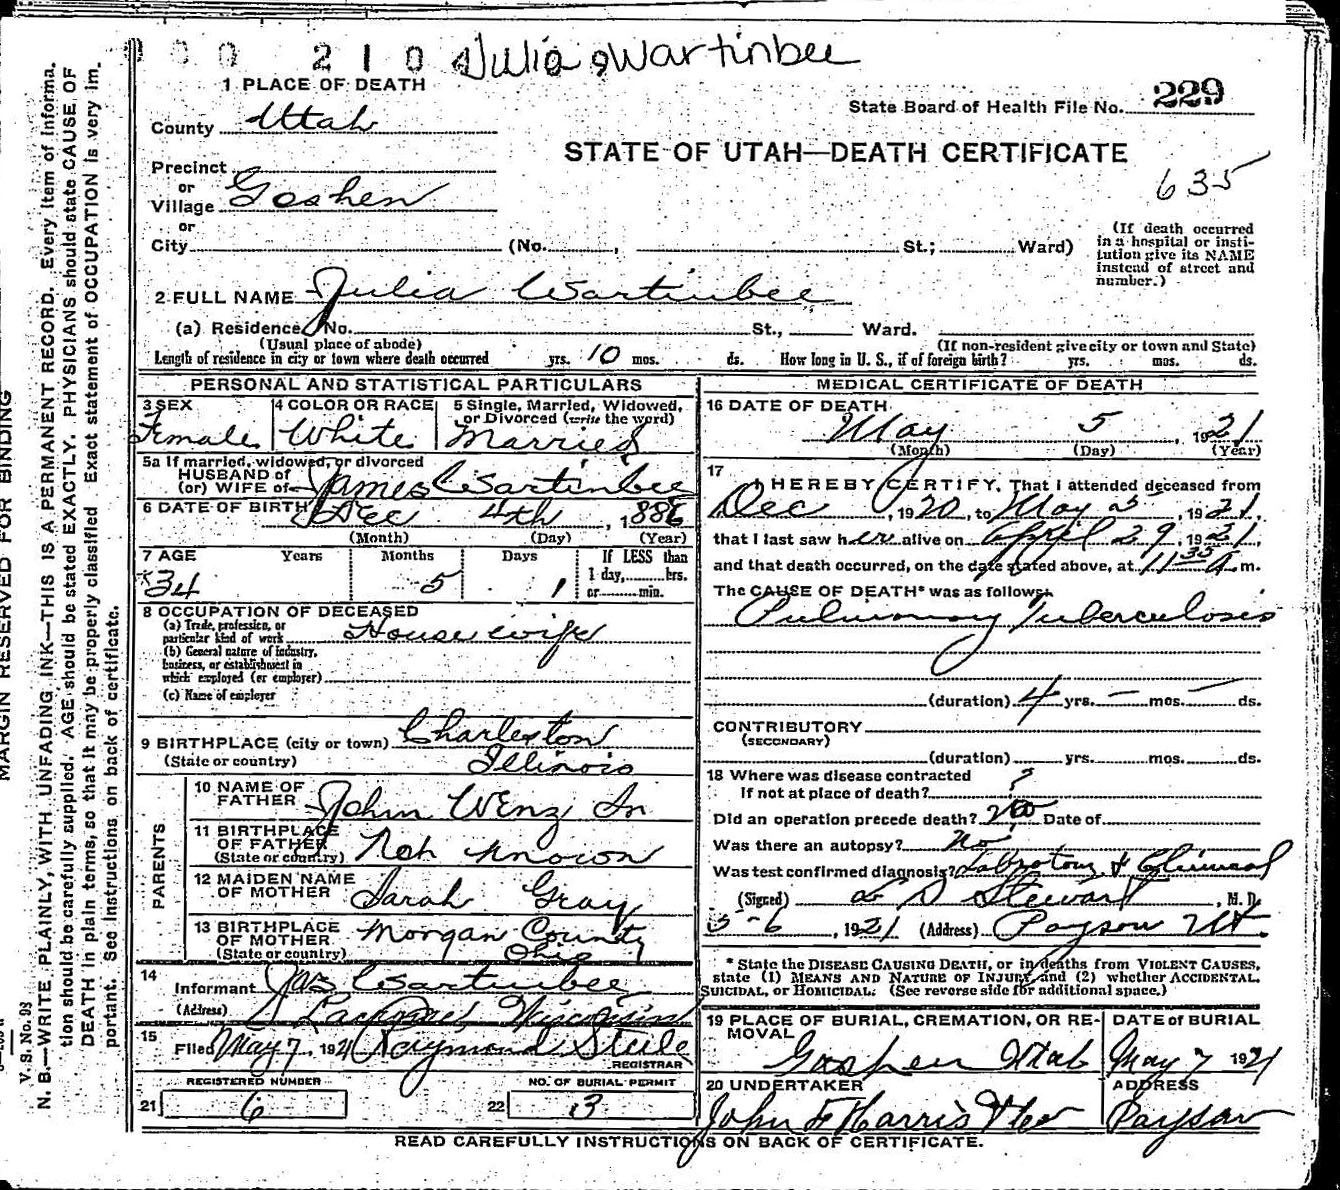 000 2104 Julia Wartinbee
1 PLACE OF DEATH
State Board of Health File No. 229
County Utah
STATE OF UTAH—DEATH CERTIFICATE
635
Precinct
or
Village Goshen
or
City (No. , St.; Ward)
(If death occurred in a hospital or insti-
tution give its NAME instead of street and number.)
2 FULL NAME Julia Wartinbee
(a) Residence No. St., Ward.
(Usual place of abode) (If non-resident give city or town and State)
Length of residence in city or town where death occurred yrs. 10 mos. ds. How long in U. S., if of foreign birth? yrs. mos. ds.
PERSONAL AND STATISTICAL PARTICULARS
3 SEX 4 COLOR OR RACE 5 Single, Married, Widowed, or Divorced (write the word)
Female White Married
5a If married, widowed, or divorced
HUSBAND of
(or) WIFE of James Wartinbee
6 DATE OF BIRTH Dec 4th, 1886
(Month) (Day) (Year)
7 AGE Years Months Days If LESS than
1 day, hrs.
or min.
34 5 1
8 OCCUPATION OF DECEASED
(a) Trade, profession, or
particular kind of work Housewife
(b) General nature of industry,
business, or establishment in
which employed (or employer)
(c) Name of employer
9 BIRTHPLACE (city or town) Charleston
(State or country) Illinois
PARENTS
10 NAME OF
FATHER John Wenz
11 BIRTHPLACE
OF FATHER
(State or country) Not Known
12 MAIDEN NAME
OF MOTHER Sarah Gray
13 BIRTHPLACE
OF MOTHER
(State or country) Morgan County
Ohio
14
Informant Jas Wartinbee
(Address) Wisconsin
15
Filed May 7, 1921 Raymond Steele
REGISTRAR
REGISTERED NUMBER NO. OF BURIAL PERMIT
21 6 22 13
MEDICAL CERTIFICATE OF DEATH
16 DATE OF DEATH
May 5, 1921
(Month) (Day) (Year)
17
I HEREBY CERTIFY, That I attended deceased from
Dec, 1920, to May 5, 1921,
that I last saw her alive on April 29, 1921,
and that death occurred, on the date stated above, at 11 35 A m.
The CAUSE OF DEATH* was as follows:
Pulmonary Tuberculosis
(duration) 4 yrs. — mos. — ds.
CONTRIBUTORY
(SECONDARY)
(duration) yrs. mos. ds.
18 Where was disease contracted
If not at place of death? ?
Did an operation precede death? No Date of
Was there an autopsy? No
Was test confirmed diagnosis? Labratory & Clinical
(Signed) L D Stewart, M. D.
5-6, 1921 (Address) Payson Ut.
* State the DISEASE CAUSING DEATH, or in deaths from VIOLENT CAUSES,
state (1) MEANS AND NATURE OF INJURY, and (2) whether ACCIDENTAL,
SUICIDAL, or HOMICIDAL. (See reverse side for additional space.)
19 PLACE OF BURIAL, CREMATION, OR RE-
MOVAL DATE OF BURIAL
Goshen Utah May 7 1921
20 UNDERTAKER ADDRESS
John F Harris & Co Payson
READ CAREFULLY INSTRUCTIONS ON BACK OF CERTIFICATE.
MARGIN RESERVED FOR BINDING
V. S. No. 98
N. B.—WRITE PLAINLY, WITH UNFADING INK—THIS IS A PERMANENT RECORD. Every item of informa-
tion should be carefully supplied. AGE should be stated EXACTLY. PHYSICIANS should state CAUSE OF
DEATH in plain terms, so that it may be properly classified. Exact statement of OCCUPATION is very im-
portant. See instructions on back of certificate.